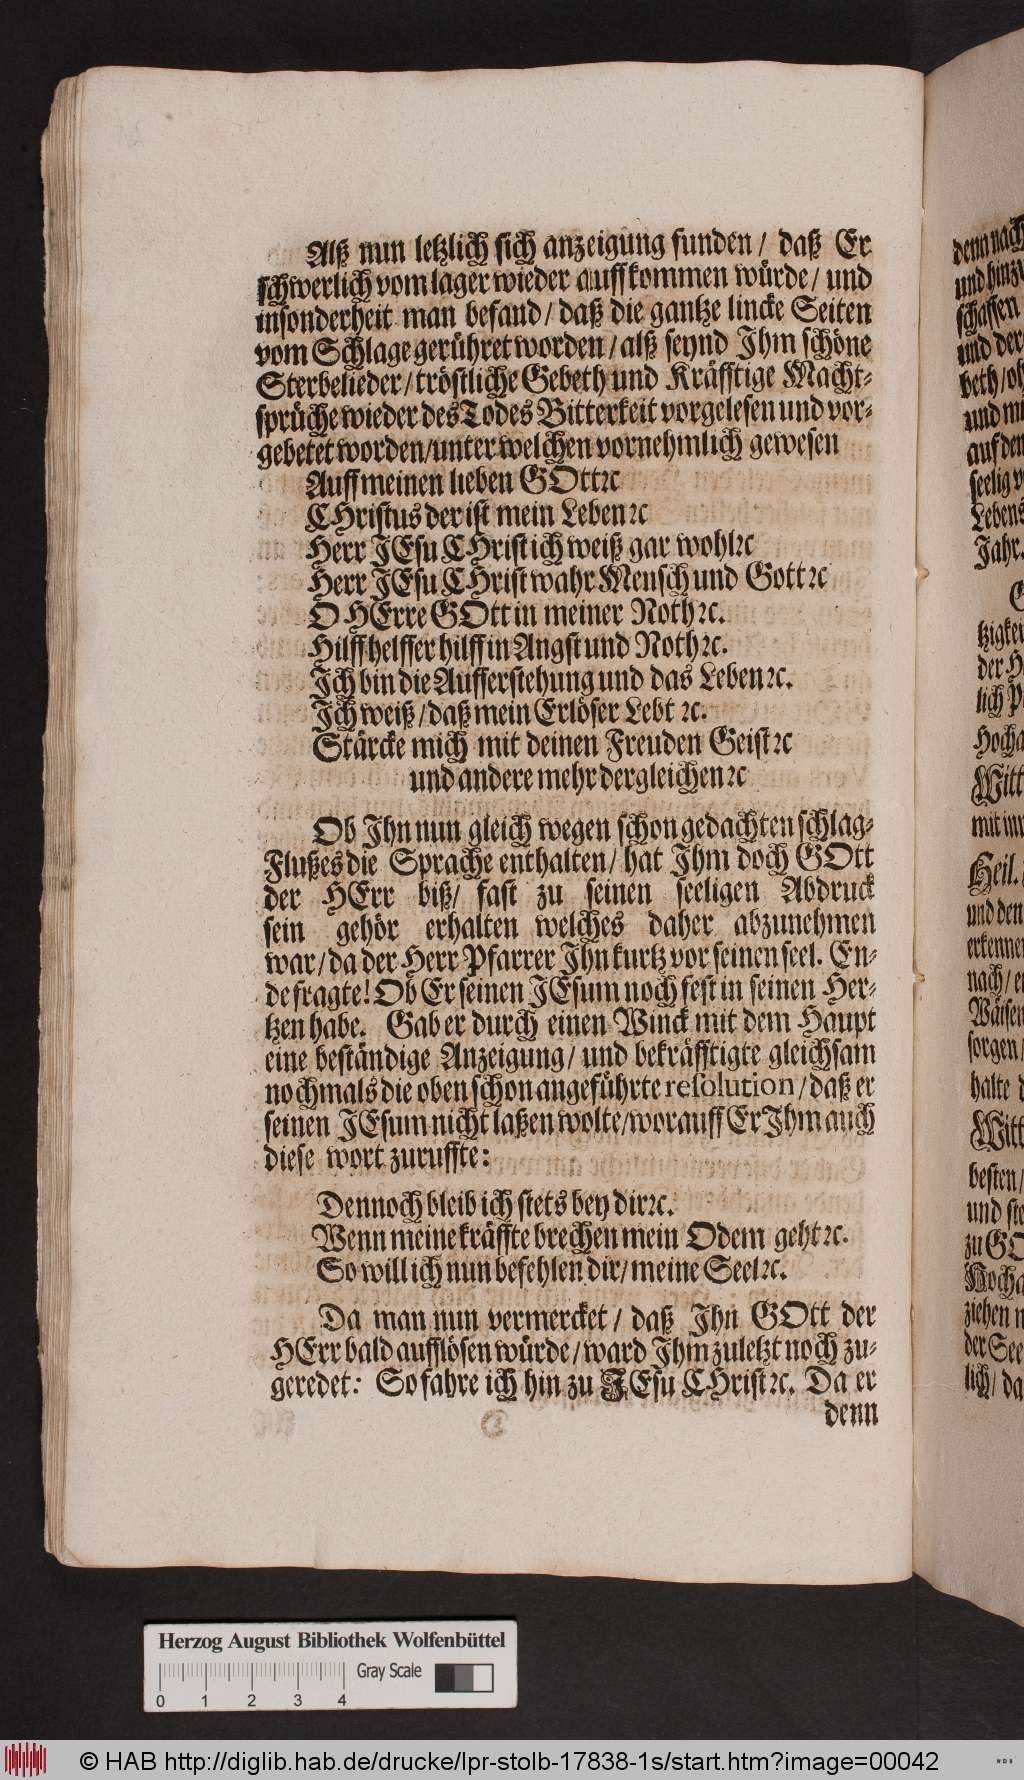 Alß nun letzlich sich anzeigung funden / daß Er
schwerlich vom lager wieder auff kommen würde / und
insonderheit man befand / daß die gantze lincke Seiten
vom Schlage gerühret worden / alß seynd Ihm schöne
Sterbelieder / tröstliche Gebeth und Kräfftige Macht-
sprüche wieder des Todes Bitterkeit vorgelesen und vor-
gebetet worden / unter welchen vornehmlich gewesen
Auff meinen lieben GOtt ꝛc
CHristus der ist mein Leben ꝛc
Herr JEsu CHrist ich weiß gar wohl ꝛc
Herr JEsu CHrist wahr Mensch und Gott ꝛc
O HErre GOtt in meiner Noth ꝛc.
Hilff helffer hilff in Angst und Noth ꝛc.
Ich bin die Aufferstehung und das Leben ꝛc.
Ich weiß / daß mein Erlöser Lebt ꝛc.
Stärcke mich mit deinen Freuden Geist ꝛc
und andere mehr dergleichen ꝛc
Ob Ihn nun gleich wegen schon gedachten schlag-
Flußes die Sprache enthalten / hat Ihm doch GOtt
der HErr biß / fast zu seinen seeligen Abdruck
sein gehör erhalten welches daher abzunehmen
war / da der Herr Pfarrer Ihn kurtz vor seinen seel. En-
de fragte! Ob Er seinen JEsum noch fest in seinen Her-
tzen habe. Gab er durch einen Winck mit dem Haupt
eine beständige Anzeigung / und bekräfftigte gleichsam
nochmals die oben schon angeführte resolution / daß er
seinen JEsum nicht laßen wolte / worauff Er Ihm auch
diese wort zuruffte:
Dennoch bleib ich stets bey dir ꝛc.
Wenn meine kräffte brechen mein Odem geht ꝛc.
So will ich nun befehlen dir / meine Seel ꝛc.
Da man nun vermercket / daß Ihn GOtt der
HErr bald aufflösen würde / ward Ihm zuletzt noch zu-
geredet: So fahre ich hin zu JEsu CHrist ꝛc. Da er
denn
denn nach
und hinzu
schaffen
und der
beth / ob
und mi
auf den
seelig v
Lebens
Jahr.
tzigkei
der H
lich P
Hocha
Witt
mit inn
Heil.
und den
erkennen
nach / er
Wäisen
sorgen /
halte d
Witt
besten /
und ste
zu GO
Hocha
ziehen n
der See
lich / da
Herzog August Bibliothek Wolfenbüttel
Gray Scale
0 1 2 3 4
© HAB http://diglib.hab.de/drucke/lpr-stolb-17838-1s/start.htm?image=00042